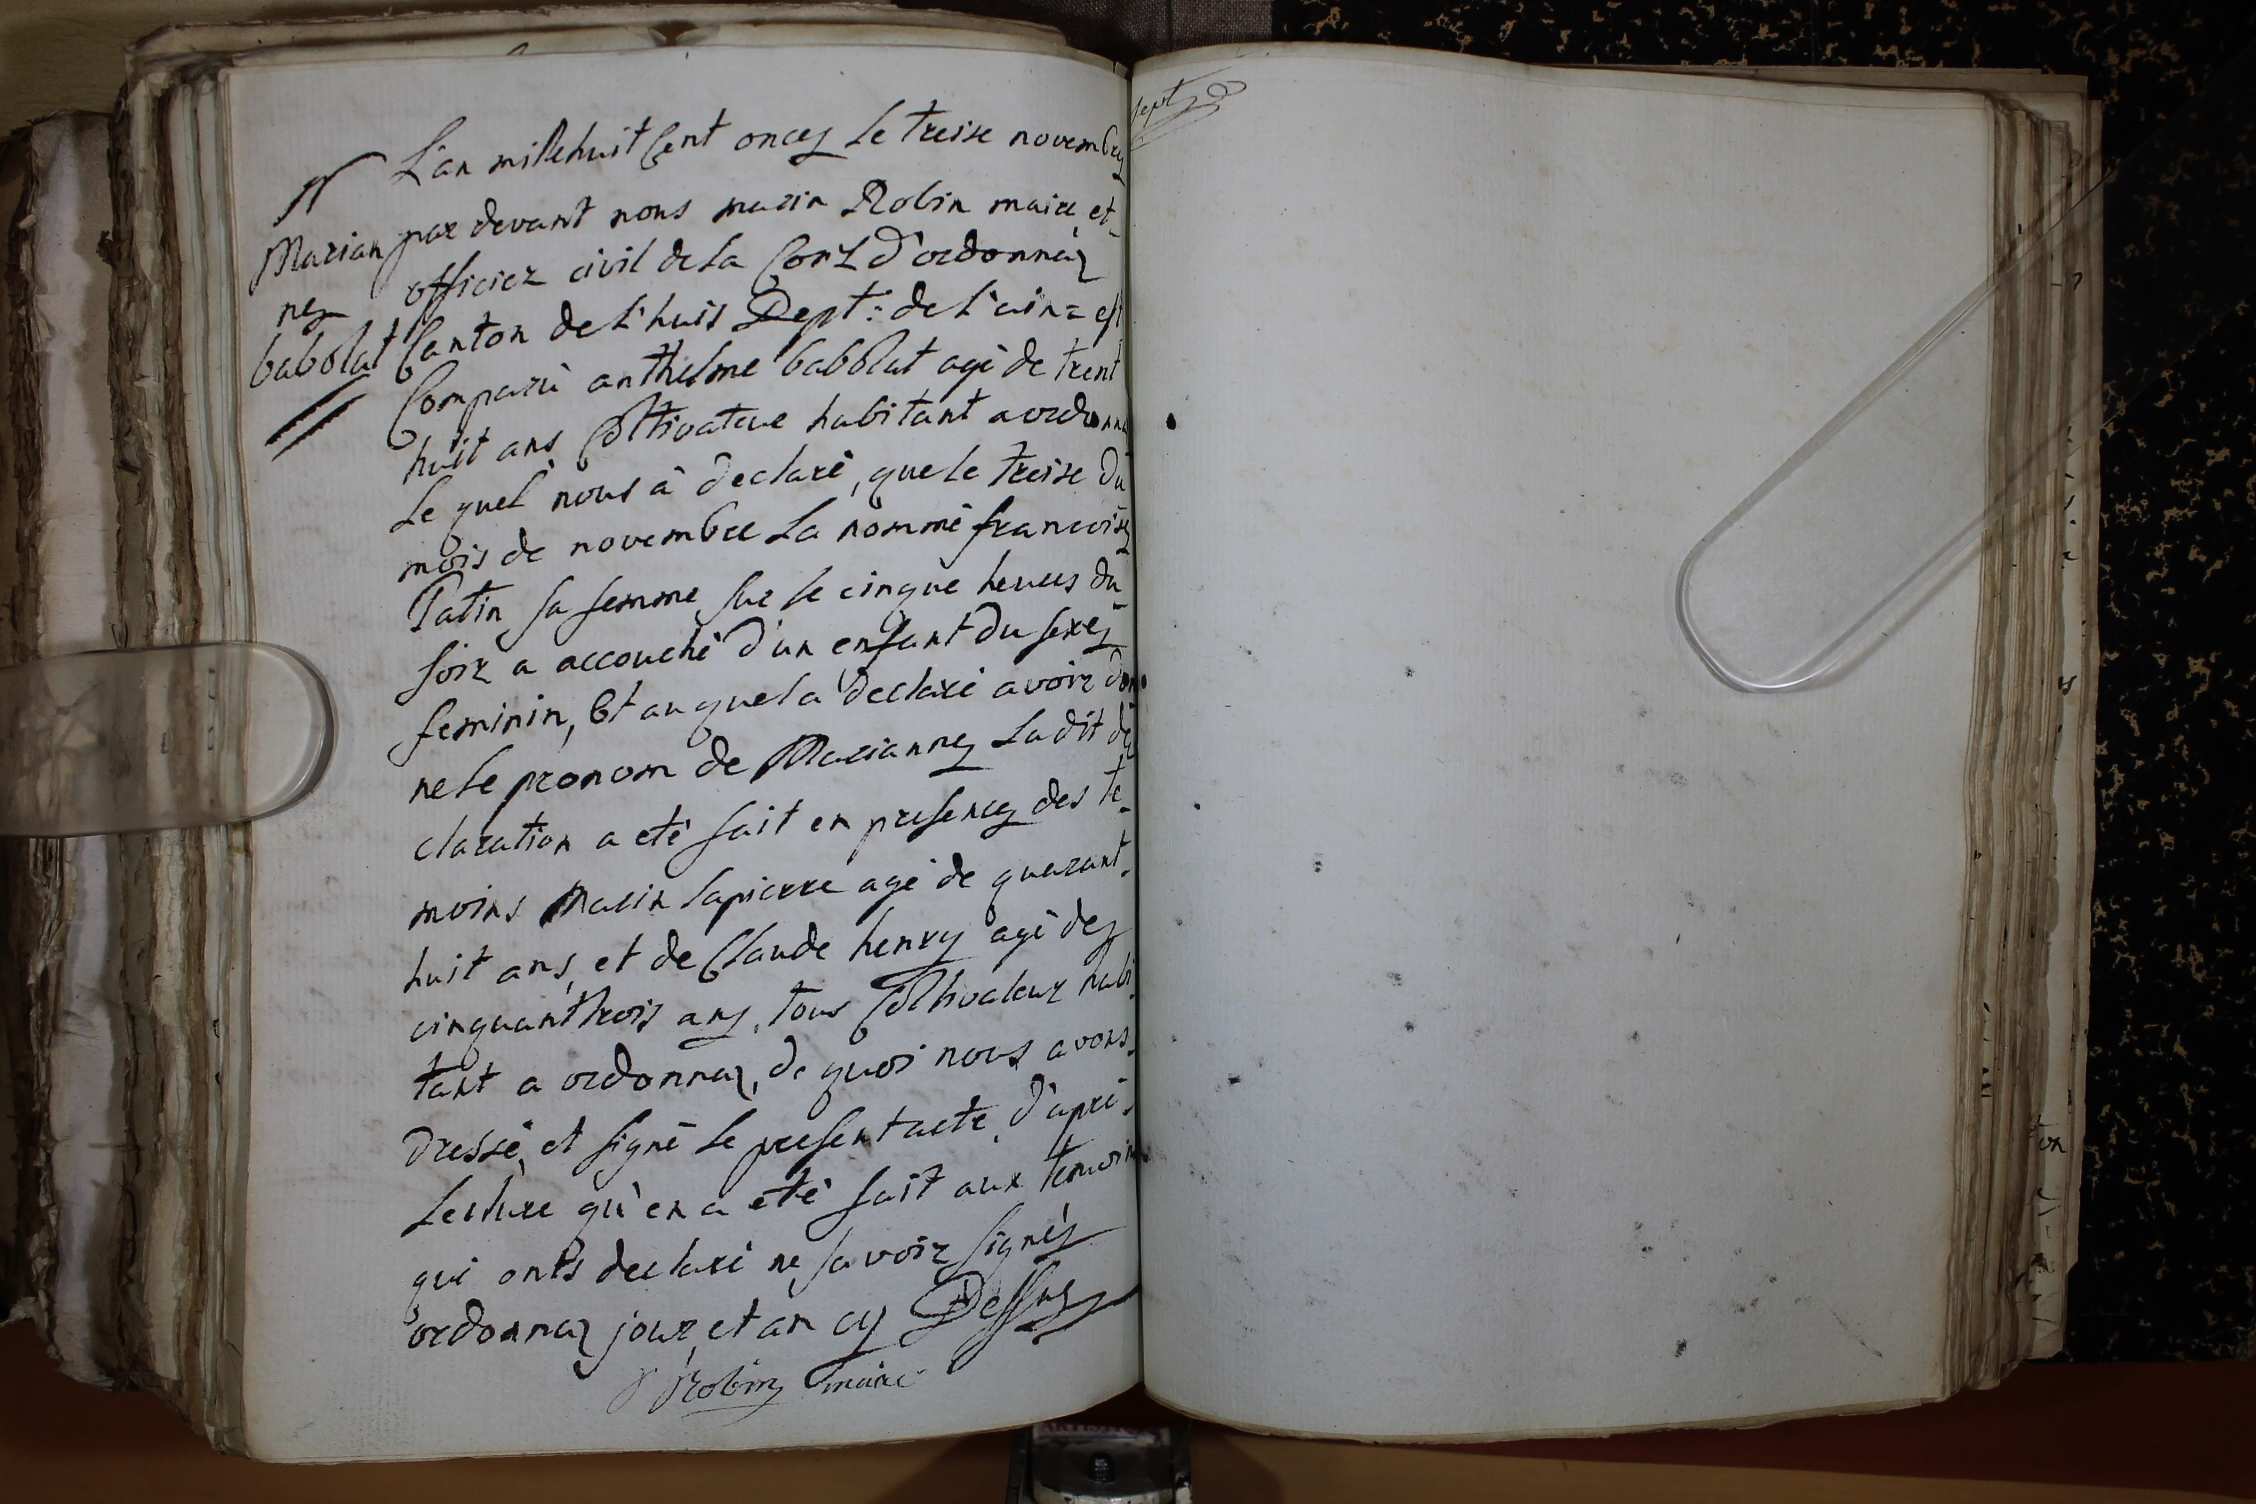 L'an mille huit Cent once le treise novembre
par devant nous marin Robin maire et
officier civil de la Com.e d'ordonnaz
Canton de L'huis Dept: de L'ain = est
Comparu anthelme babolat agé de trent
huit ans Coltivateur habitant a ordonna
Le quel nous à declaré, que le treise Du
mois de novembre La nommé francoise
Patin sa femme sur le cinque heures du
soir a accouché d'un enfant du sexe
feminin, Et au quel a declaré avoir don
ne le pronom de Marianne La dit de
claration a eté fait en presence des te-
moins Marin Lapierre agé de quarant
huit ans, et de Claude henry agé de
cinquant trois ans, tous Coltivateur habi
tant a ordonnaz, de quoi nous avons
Dressé et signé le present acte, d'apré
Lecture qu'en a eté fait aux temoin
qui onts declaré ne savoir signé
ordonnaz jour et an cy Dessus
Robin maire
Marian
ne
babolat
sept